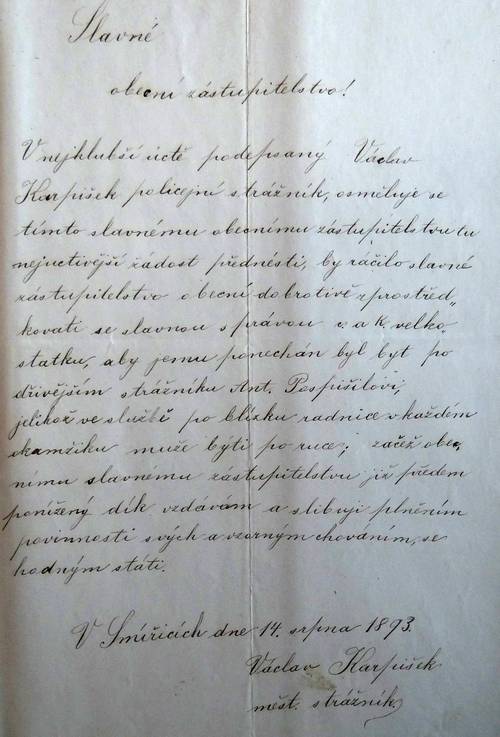 Slavné
obecní zástupitelstvo!
V nejhlubší úctě podepsaný Václav
Karpíšek policejní strážník, osměluje se
tímto slavnému obecnímu zástupitelstvu tu
nejuctivější žádost přednésti, by ráčilo slavné
zástupitelstvo obecní dobrotivě zprostřed„
kovati se slavnou správou c. a k. velko
statku, aby jemu ponechán byl byt po
dřívějším strážníku Ant. Pospíšilovi,
jelikož ve službě po blízku radnice v každém
okamžiku může býti po ruce; začež obec„
nímu slavnému zástupitelstvu již předem
ponížený dík vzdávám a slibuji plněním
povinností svých a vzorným chováním, se
hodným státi.
V Smiřicích dne 14. srpna 1893.
Václav Karpíšek
měst. strážník